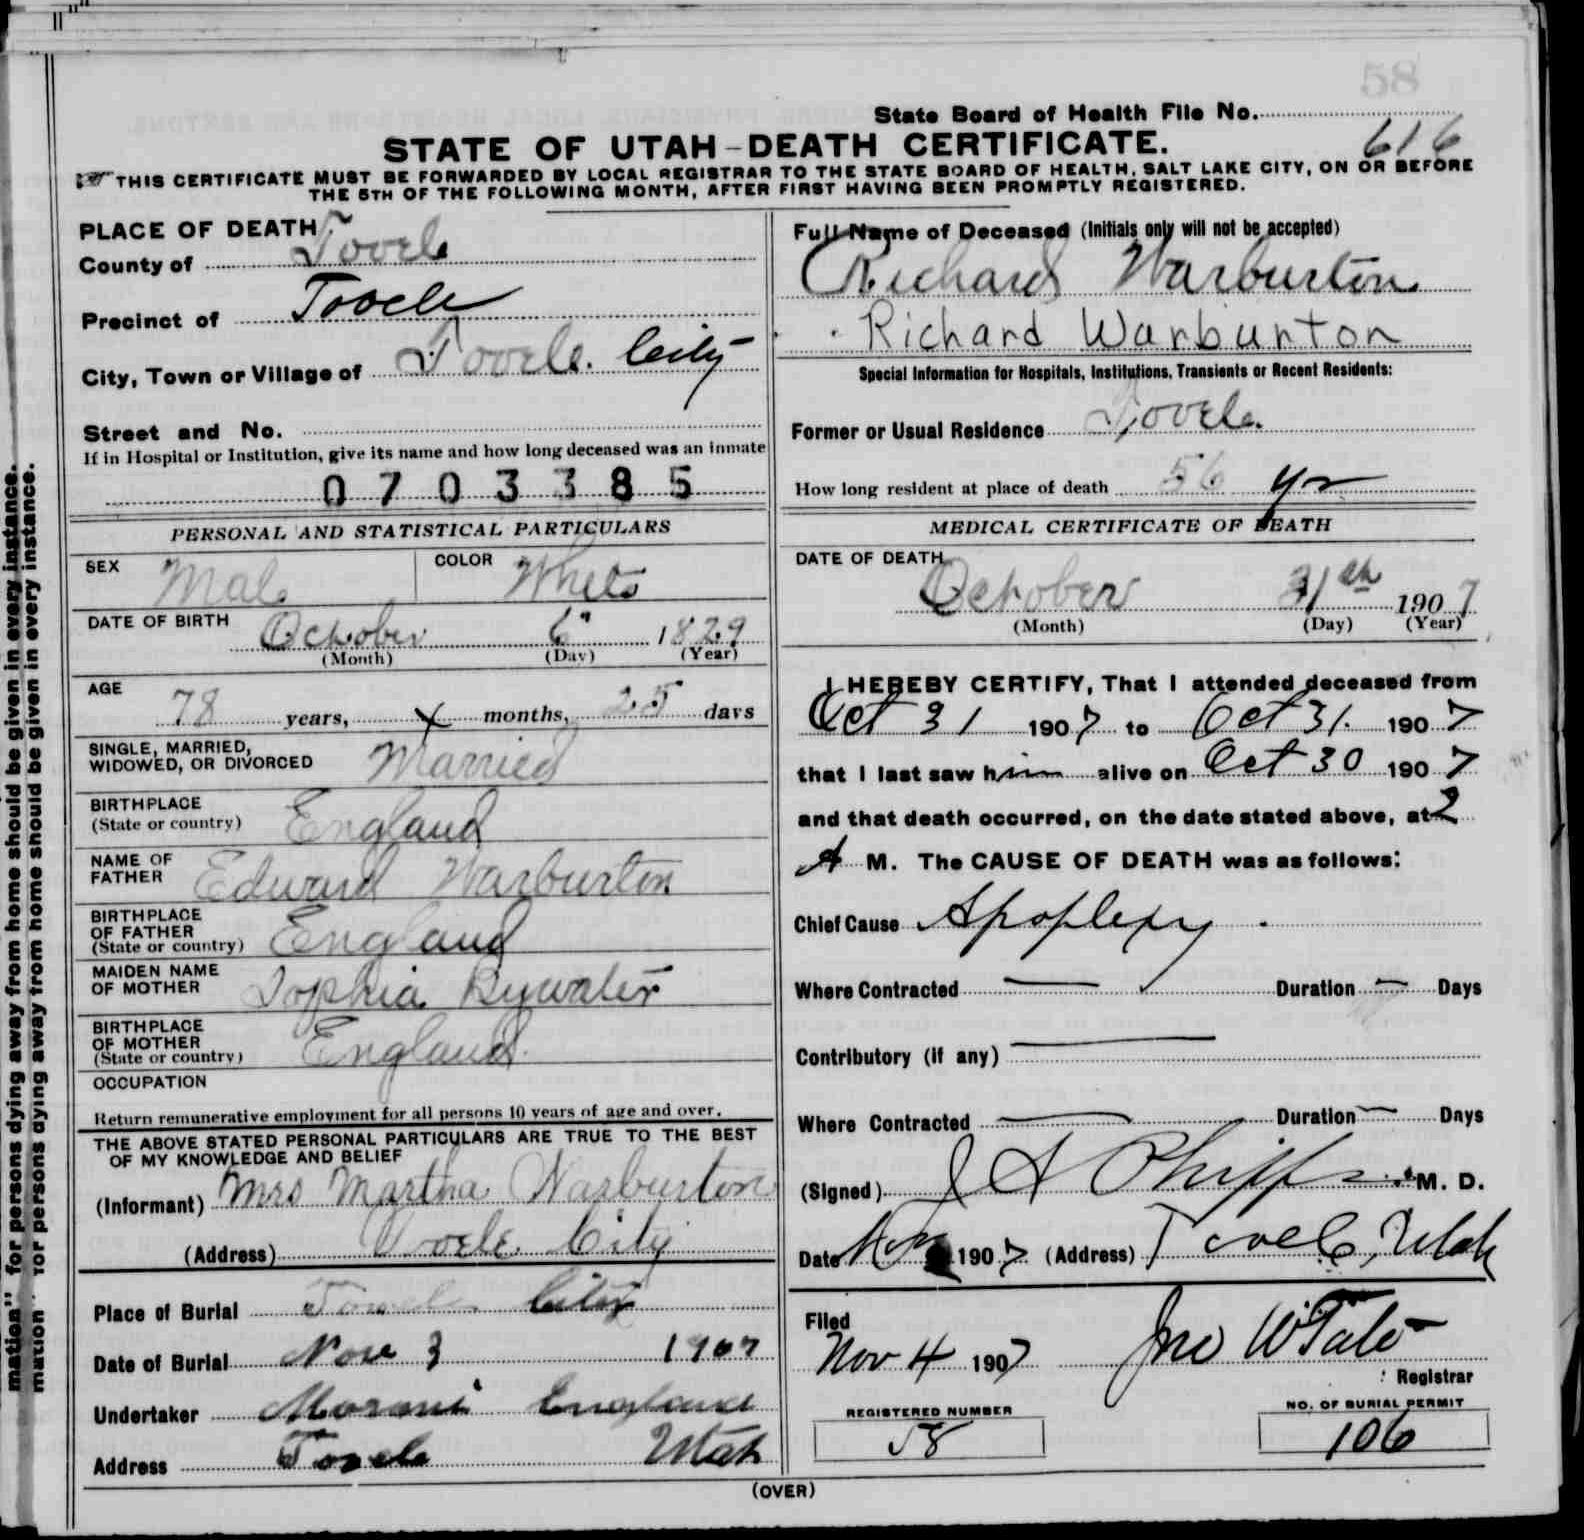 58
State Board of Health File No.
616
STATE OF UTAH-DEATH CERTIFICATE.
THIS CERTIFICATE MUST BE FORWARDED BY LOCAL REGISTRAR TO THE STATE BOARD OF HEALTH, SALT LAKE CITY, ON OR BEFORE
THE 5TH OF THE FOLLOWING MONTH, AFTER FIRST HAVING BEEN PROMPTLY REGISTERED.
PLACE OF DEATH
County of Tooele
Precinct of Tooele
City, Town or Village of Tooele City
Street and No.
If in Hospital or Institution, give its name and how long deceased was an inmate
0703385
PERSONAL AND STATISTICAL PARTICULARS
SEX Male COLOR White
DATE OF BIRTH October 6" 1829
(Month) (Day) (Year)
AGE 78 years, X months, 25 days
SINGLE, MARRIED,
WIDOWED, OR DIVORCED Married
BIRTHPLACE
(State or country) England
NAME OF
FATHER Edward Warburton
BIRTHPLACE
OF FATHER
(State or country) England
MAIDEN NAME
OF MOTHER Sophia Bywater
BIRTHPLACE
OF MOTHER
(State or country) England
OCCUPATION
Return remunerative employment for all persons 10 years of age and over.
THE ABOVE STATED PERSONAL PARTICULARS ARE TRUE TO THE BEST
OF MY KNOWLEDGE AND BELIEF
(Informant) Mrs Martha Warburton
(Address) Tooele City
Place of Burial Tooele City
Date of Burial Nov 3 1907
Undertaker Moroni England
Address Tooele Utah
Full Name of Deceased (Initials only will not be accepted)
Richard Warburton
Richard Warburton
Special Information for Hospitals, Institutions, Transients or Recent Residents:
Former or Usual Residence Tooele
How long resident at place of death 56 yr
MEDICAL CERTIFICATE OF DEATH
DATE OF DEATH
October 31th 1907
(Month) (Day) (Year)
I HEREBY CERTIFY, That I attended deceased from
Oct 31 1907 to Oct 31 1907
that I last saw him alive on Oct 30 1907
and that death occurred, on the date stated above, at 2
A M. The CAUSE OF DEATH was as follows:
Chief Cause Apoplexy.
Where Contracted — Duration — Days
Contributory (if any) —
Where Contracted — Duration — Days
(Signed) J A Phipps M. D.
Date Nov 1907 (Address) Tooele, Utah
Filed
Nov 4 1907 Jno W Tate
Registrar
REGISTERED NUMBER
58
NO. OF BURIAL PERMIT
106
(OVER)
mation" for persons dying away from home should be given in every instance.
mation for persons dying away from home should be given in every instance.